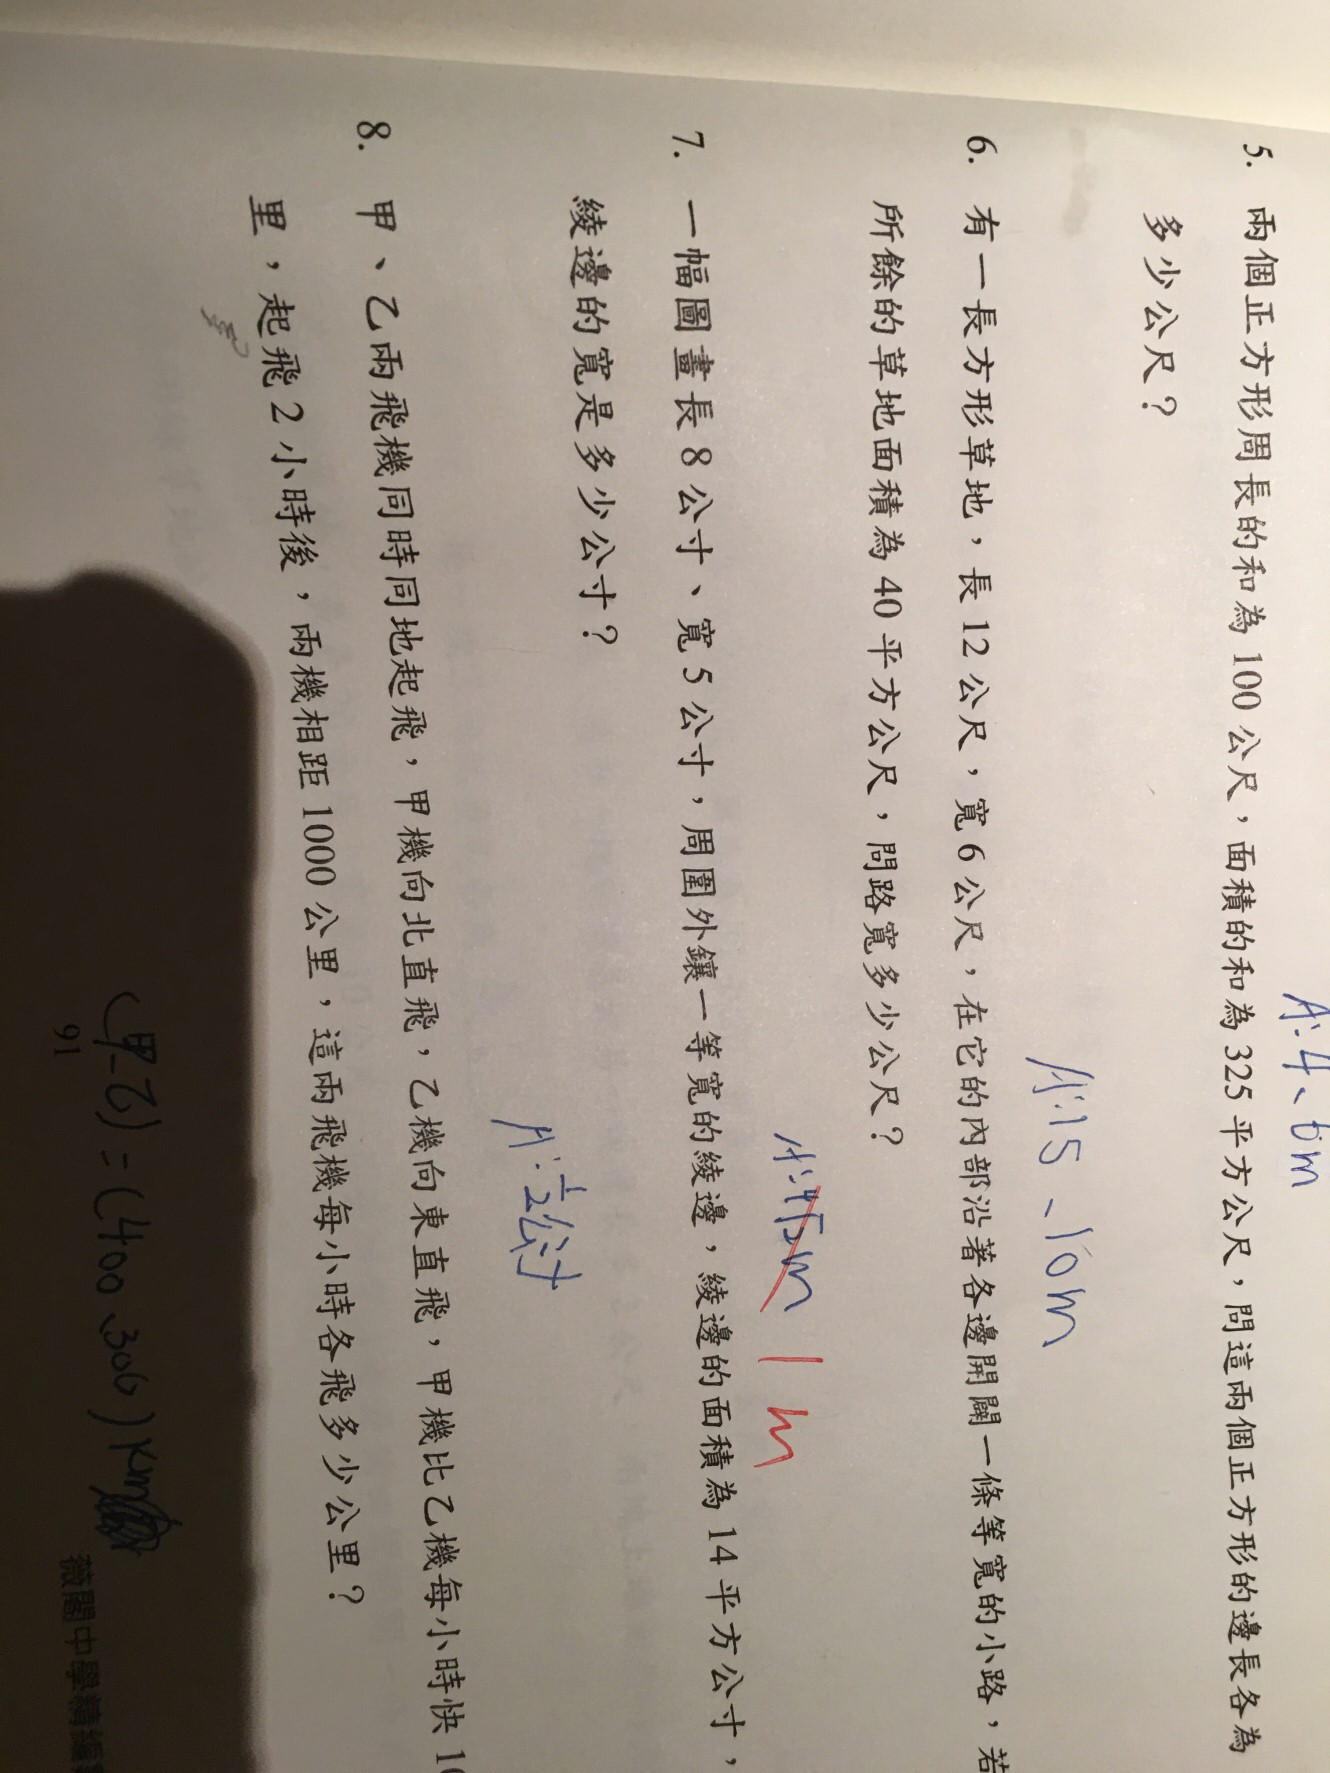 A:4、6m
5. 兩個正方形周長的和為 100 公尺，面積的和為 325 平方公尺，問這兩個正方形的邊長各為
多少公尺？
A:15、10m
6. 有一長方形草地，長 12 公尺，寬 6 公尺，在它的內部沿著各邊開闢一條等寬的小路，若
所餘的草地面積為 40 平方公尺，問路寬多少公尺？
1m
7. 一幅圖畫長 8 公寸、寬 5 公寸，周圍外鑲一等寬的綾邊，綾邊的面積為 14 平方公寸，
綾邊的寬是多少公寸？
A:½公寸
8. 甲、乙兩飛機同時同地起飛，甲機向北直飛，乙機向東直飛，甲機比乙機每小時快 10
里，起飛 2 小時後，兩機相距 1000 公里，這兩飛機每小時各飛多少公里？
(甲、乙)=(400、300)km
91
薇閣中學精編